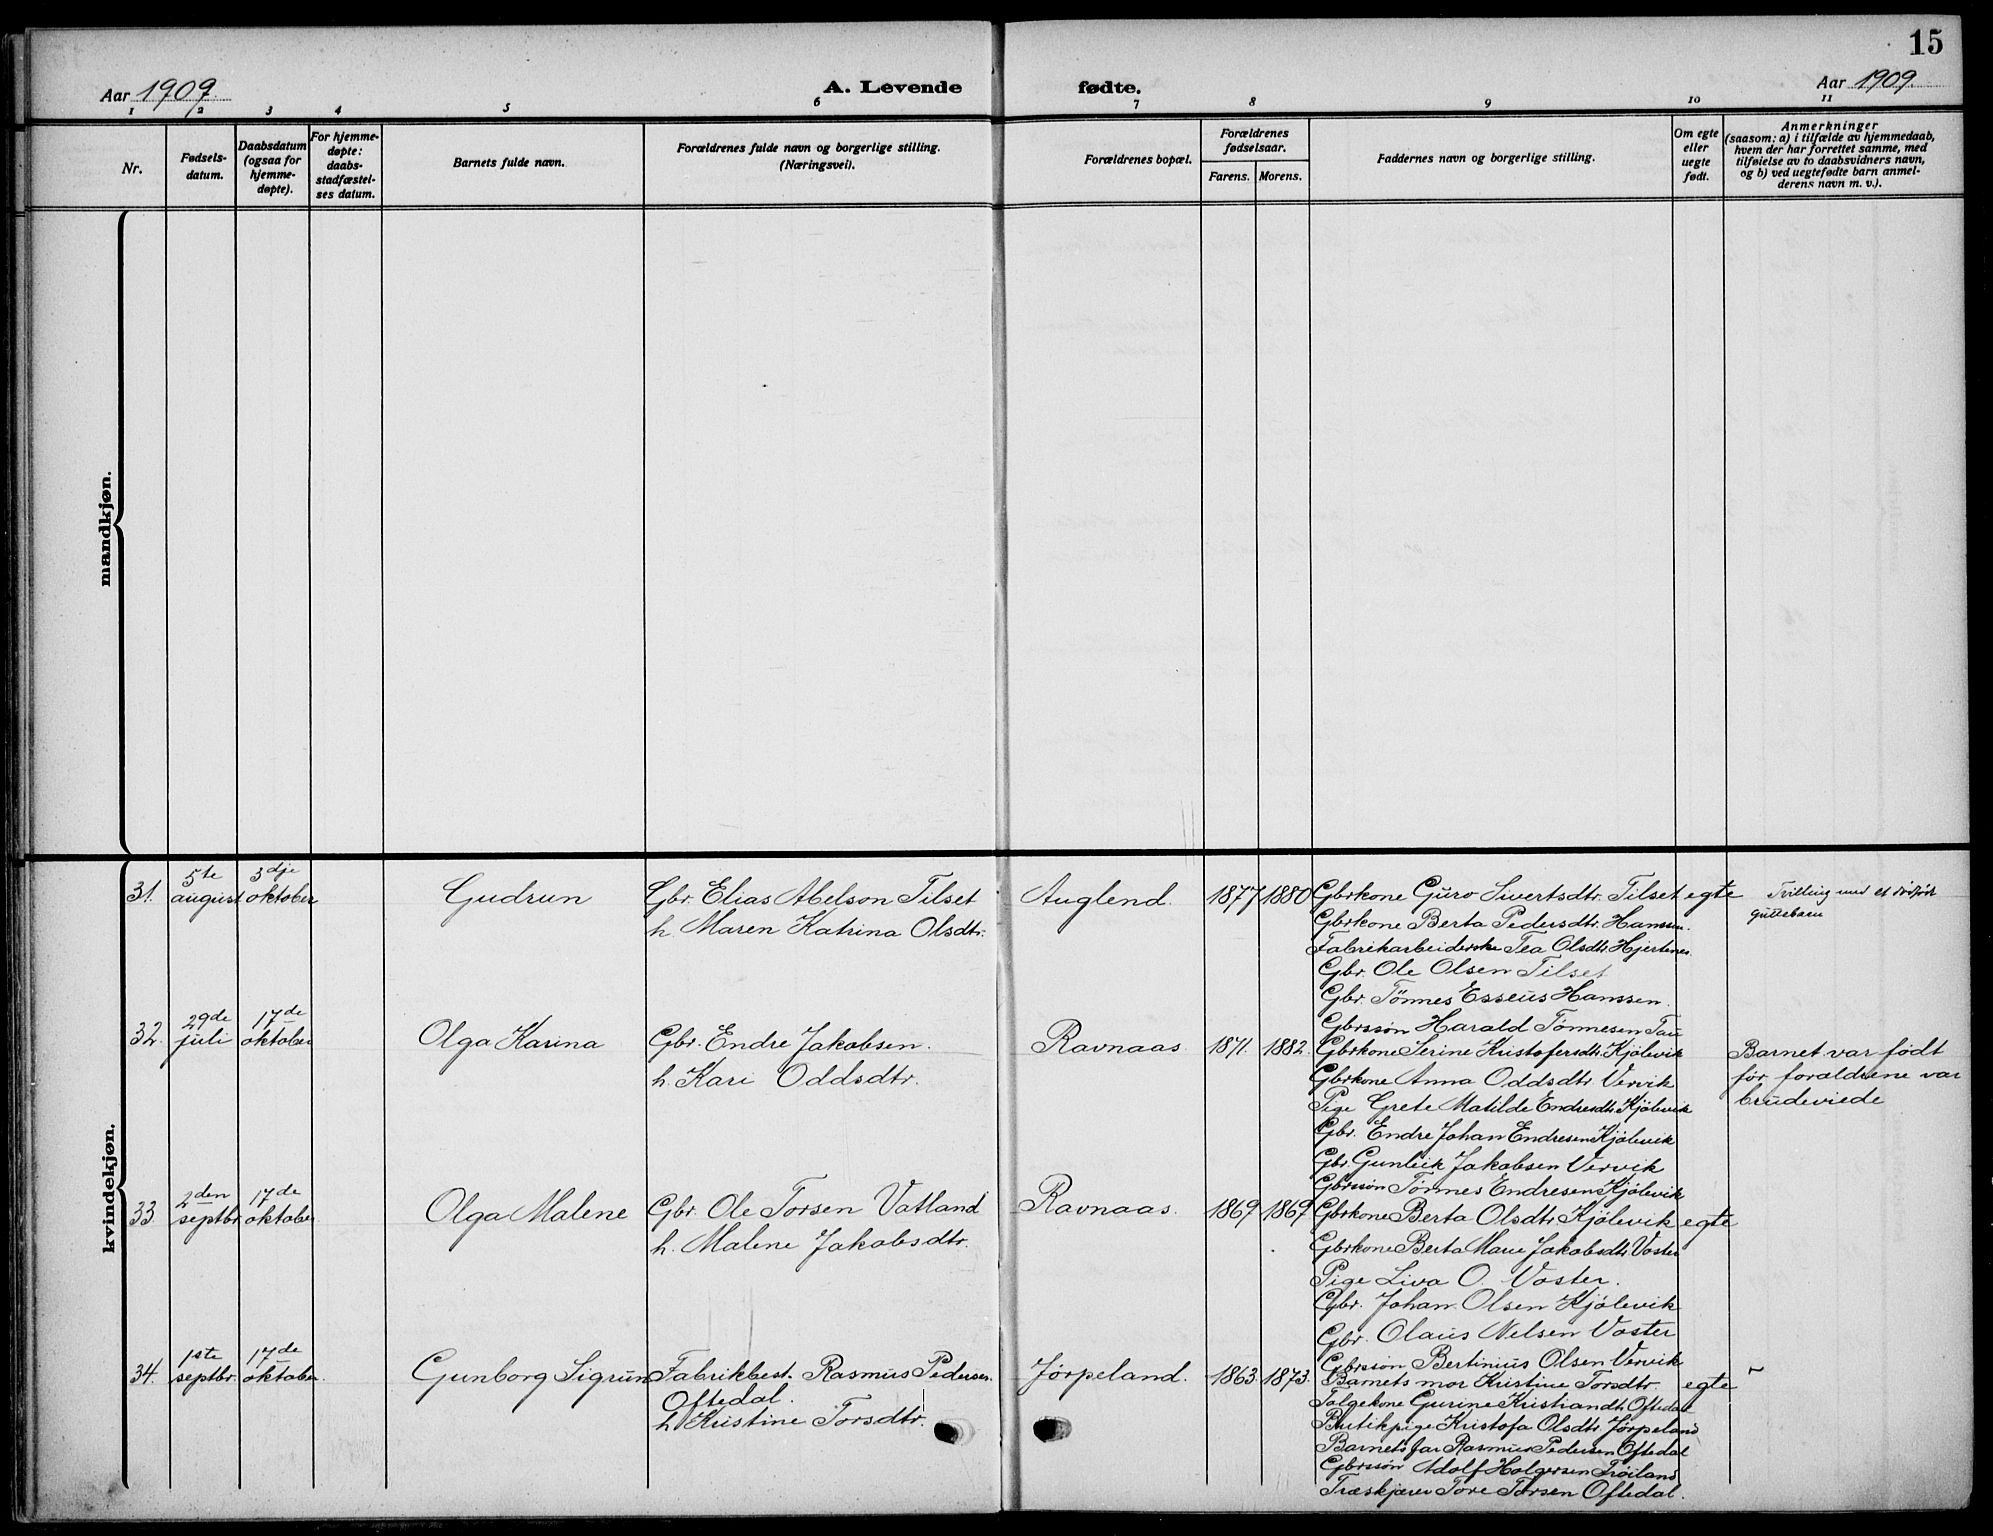 15
Aar 1909. A. Levende fødte. Aar 1909.
1 2 3 4 5 6 7 8 9 10 11
Nr.
Fødsels-
datum.
Daabsdatum
(ogsaa for
hjemme-
døpte).
For hjemme-
døpte:
daabs-
stadfæstel-
ses datum.
Barnets fulde navn.
Forældrenes fulde navn og borgerlige stilling.
(Næringsvei).
Forældrenes bopæl.
Forældrenes
fødselsaar.
Farens. Morens.
Faddernes navn og borgerlige stilling.
Om egte
eller
uegte
født.
Anmerkninger
(saasom: a) i tilfælde av hjemmedaab,
hvem der har forrettet samme, med
tilføielse av to daabsvidners navn,
og b) ved uegtefødte barn anmel-
derens navn m. v.).
mandkjøn.
kvindekjøn.
31.
5te
august
3dje
oktober
Gudrun
Gbr. Elias Abelson Tilset
h. Maren Katrina Olsdtr.
Auglend.
1877 1880
Gbrkone Guro Sivertsdtr. Tilset
Gbrkone Berta Pedersdtr. Hanssen.
Fabrikarbeiderske Tea Olsdtr. Hjertenes
Gbr. Ole Olsen Tilset
Gbr. Tönnes Esseus Hanssen.
Gbrssön Harald Tönnesen Tau
egte
Tvilling med et dödfödt
guttebarn
32.
29de
juli
17de
oktober
Olga Karina
Gbr. Endre Jakobsen.
h. Kari Oddsdtr.
Ravnaas
1871. 1882.
Gbrkone Serine Kristofersdtr. Kjölevik
Gbrkone Anna Oddsdtr. Vervik
Pige Grete Matilde Endresdtr. Kjölevik
Gbr. Endre Johan Endresen Kjölevik
Gbr. Gunleik Jakobsen Vervik
Gbrssön Tönnes Endresen Kjölevik
Barnet var födt
för forældrene var
brudeviede
33.
2den
septbr.
17de
oktober
Olga Malene
Gbr. Ole Torsen Vatland
h. Malene Jakobsdtr.
Ravnaas.
1869 1869
Gbrkone Berta Olsdtr. Kjölevik
Gbrkone Berta Marie Jakobsdtr. Voster
Pige Liva O. Voster.
Gbr. Johan Olsen Kjölevik
Gbr. Olaus Nelsen Voster
Gbrssön Bertinius Olsen Vervik
egte
34.
1ste
septbr.
17de
oktober.
Gunborg Sigrun
Fabrikbest. Rasmus Pedersen
Oftedal.
h. Kristine Torsdtr.
Jørpeland.
1863. 1873.
Barnets mor Kristine Torsdtr.
Gurine Kristiandtr. Oftedal
Butikpige Kristofa Olsdtr. Jørpeland
Barnets far Rasmus Pedersen Oftedal
Gbrssön Adolf Holgersen Tröiland
Træskjærer Tore Torsen Oftedal.
egte